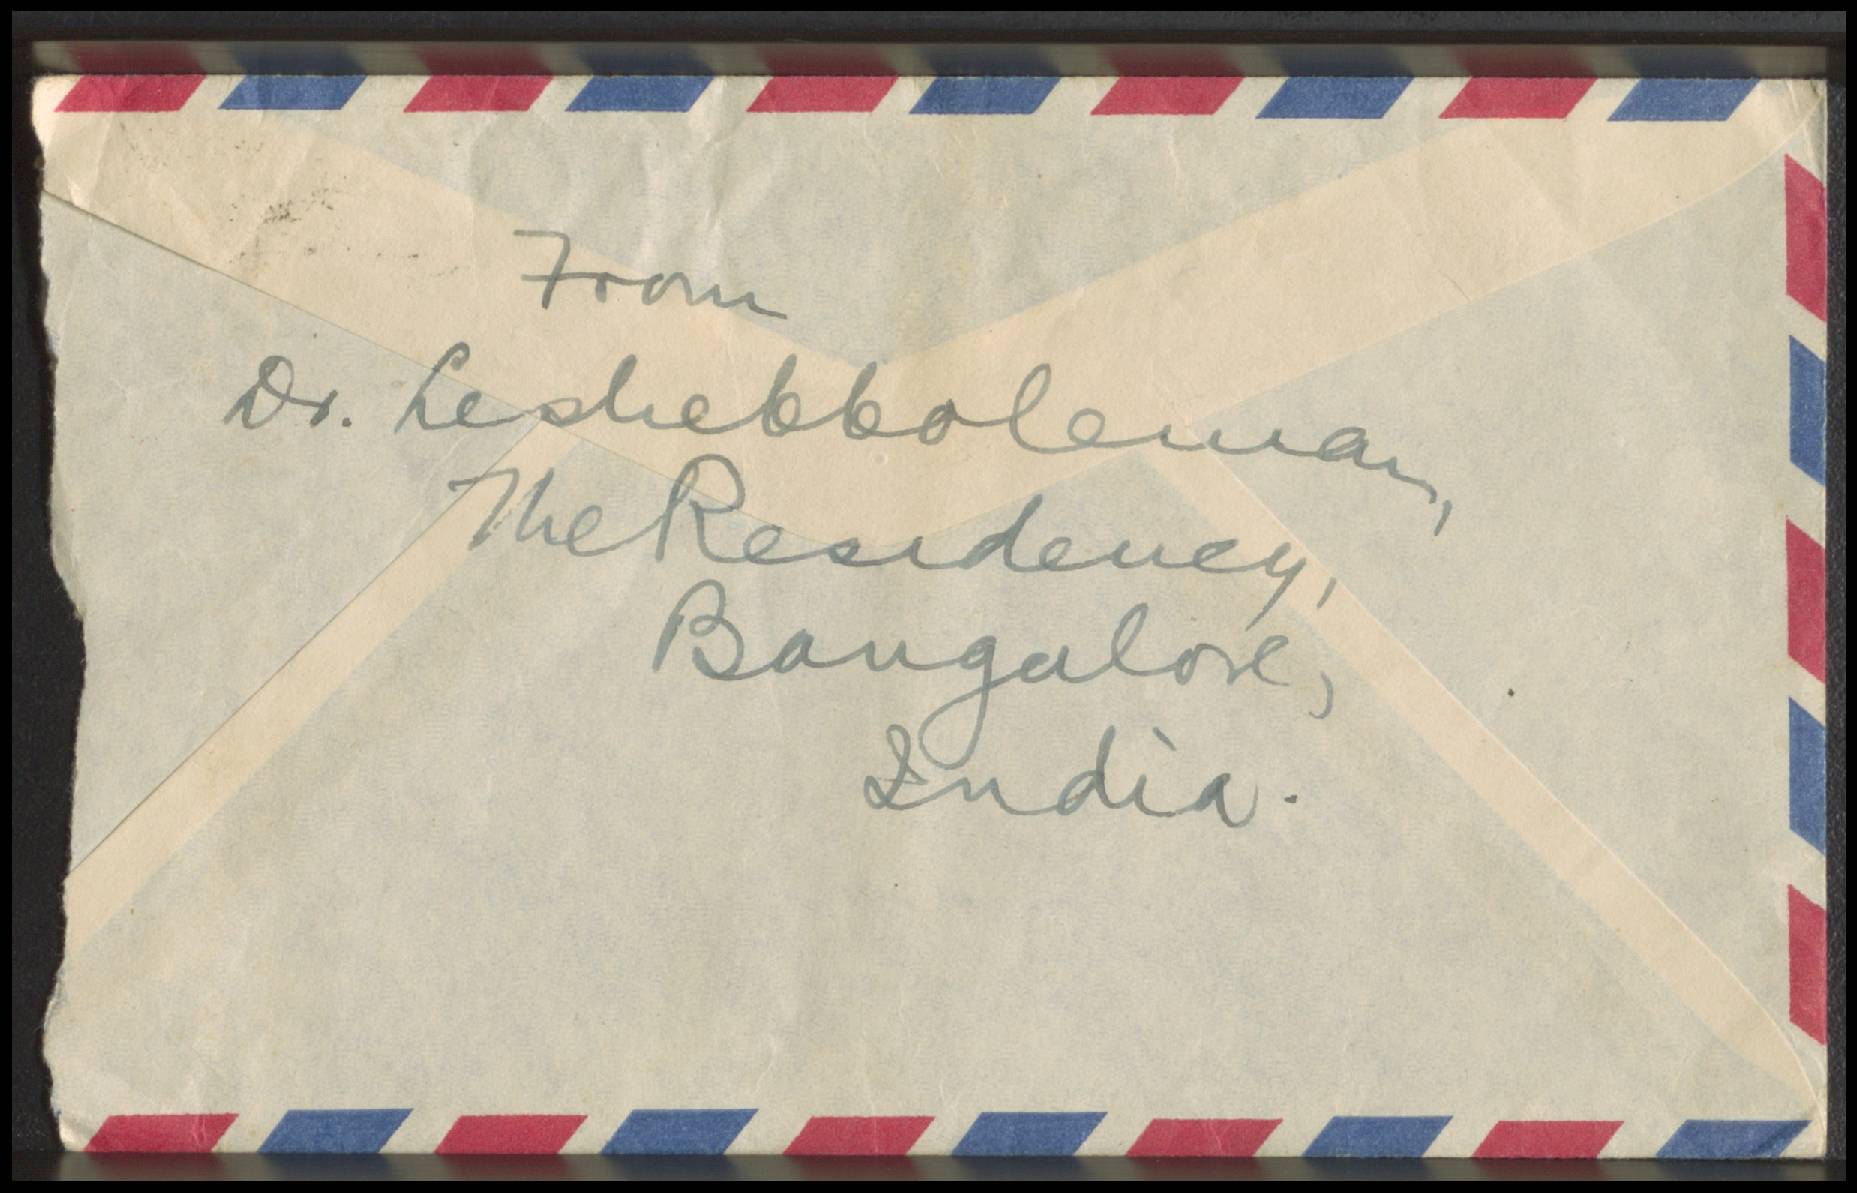 From
Dr. Leslie Coleman,
The Residency,
Bangalore,
India.